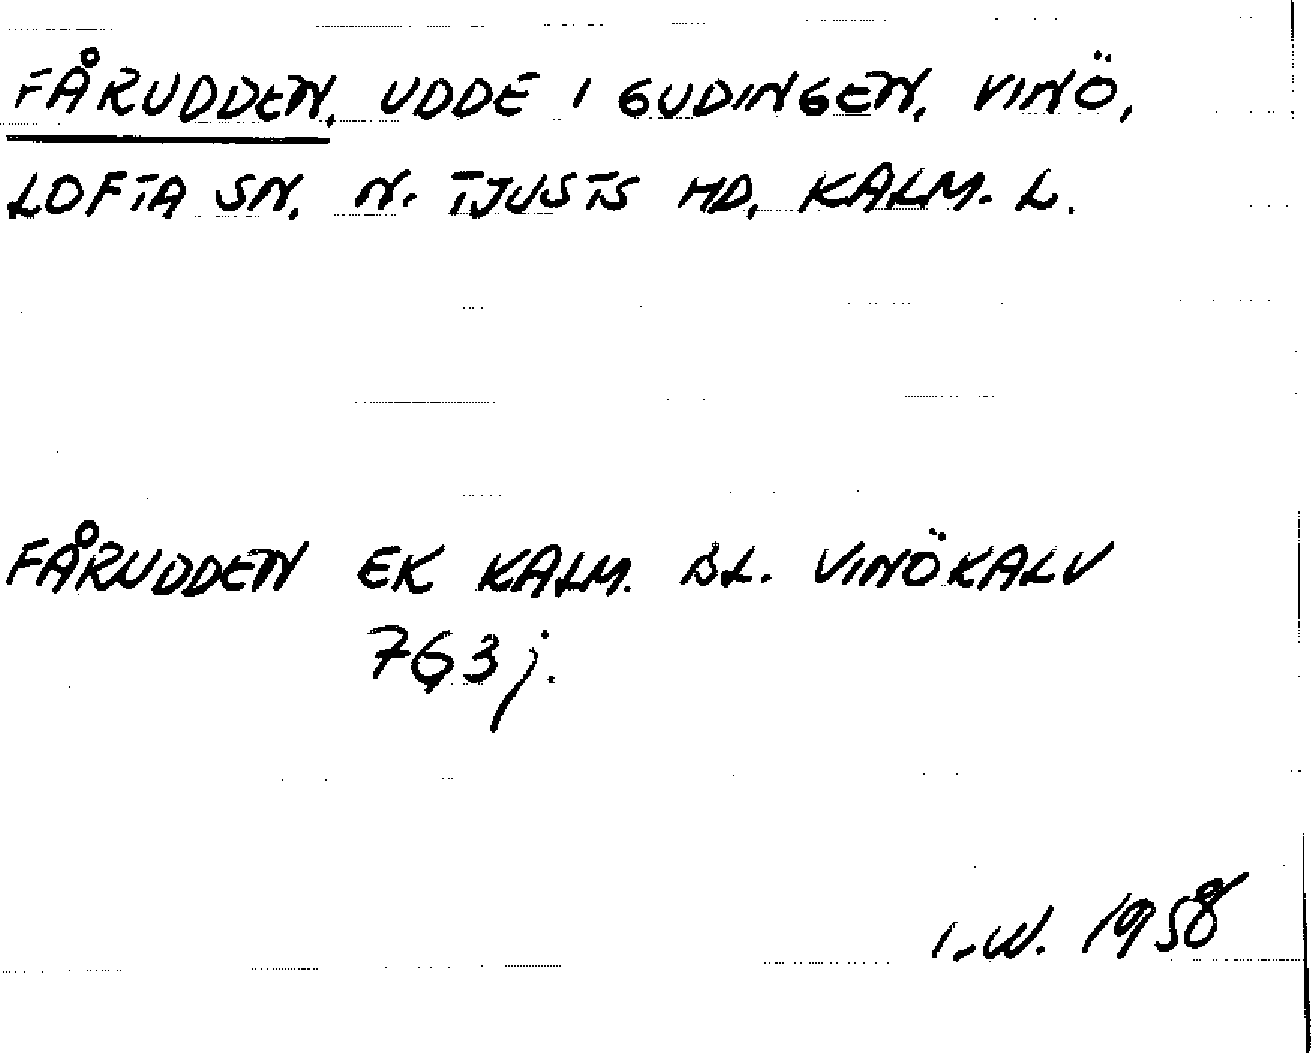 FÅRUDDEN, UDDE I GUDINGEN, VINÖ,
LOFTA SN. N. TJUSTS HD, KALM. L.
FÅRUDDEN EK KALM. BL. VINÖKALV
763 j.
I.W. 1958